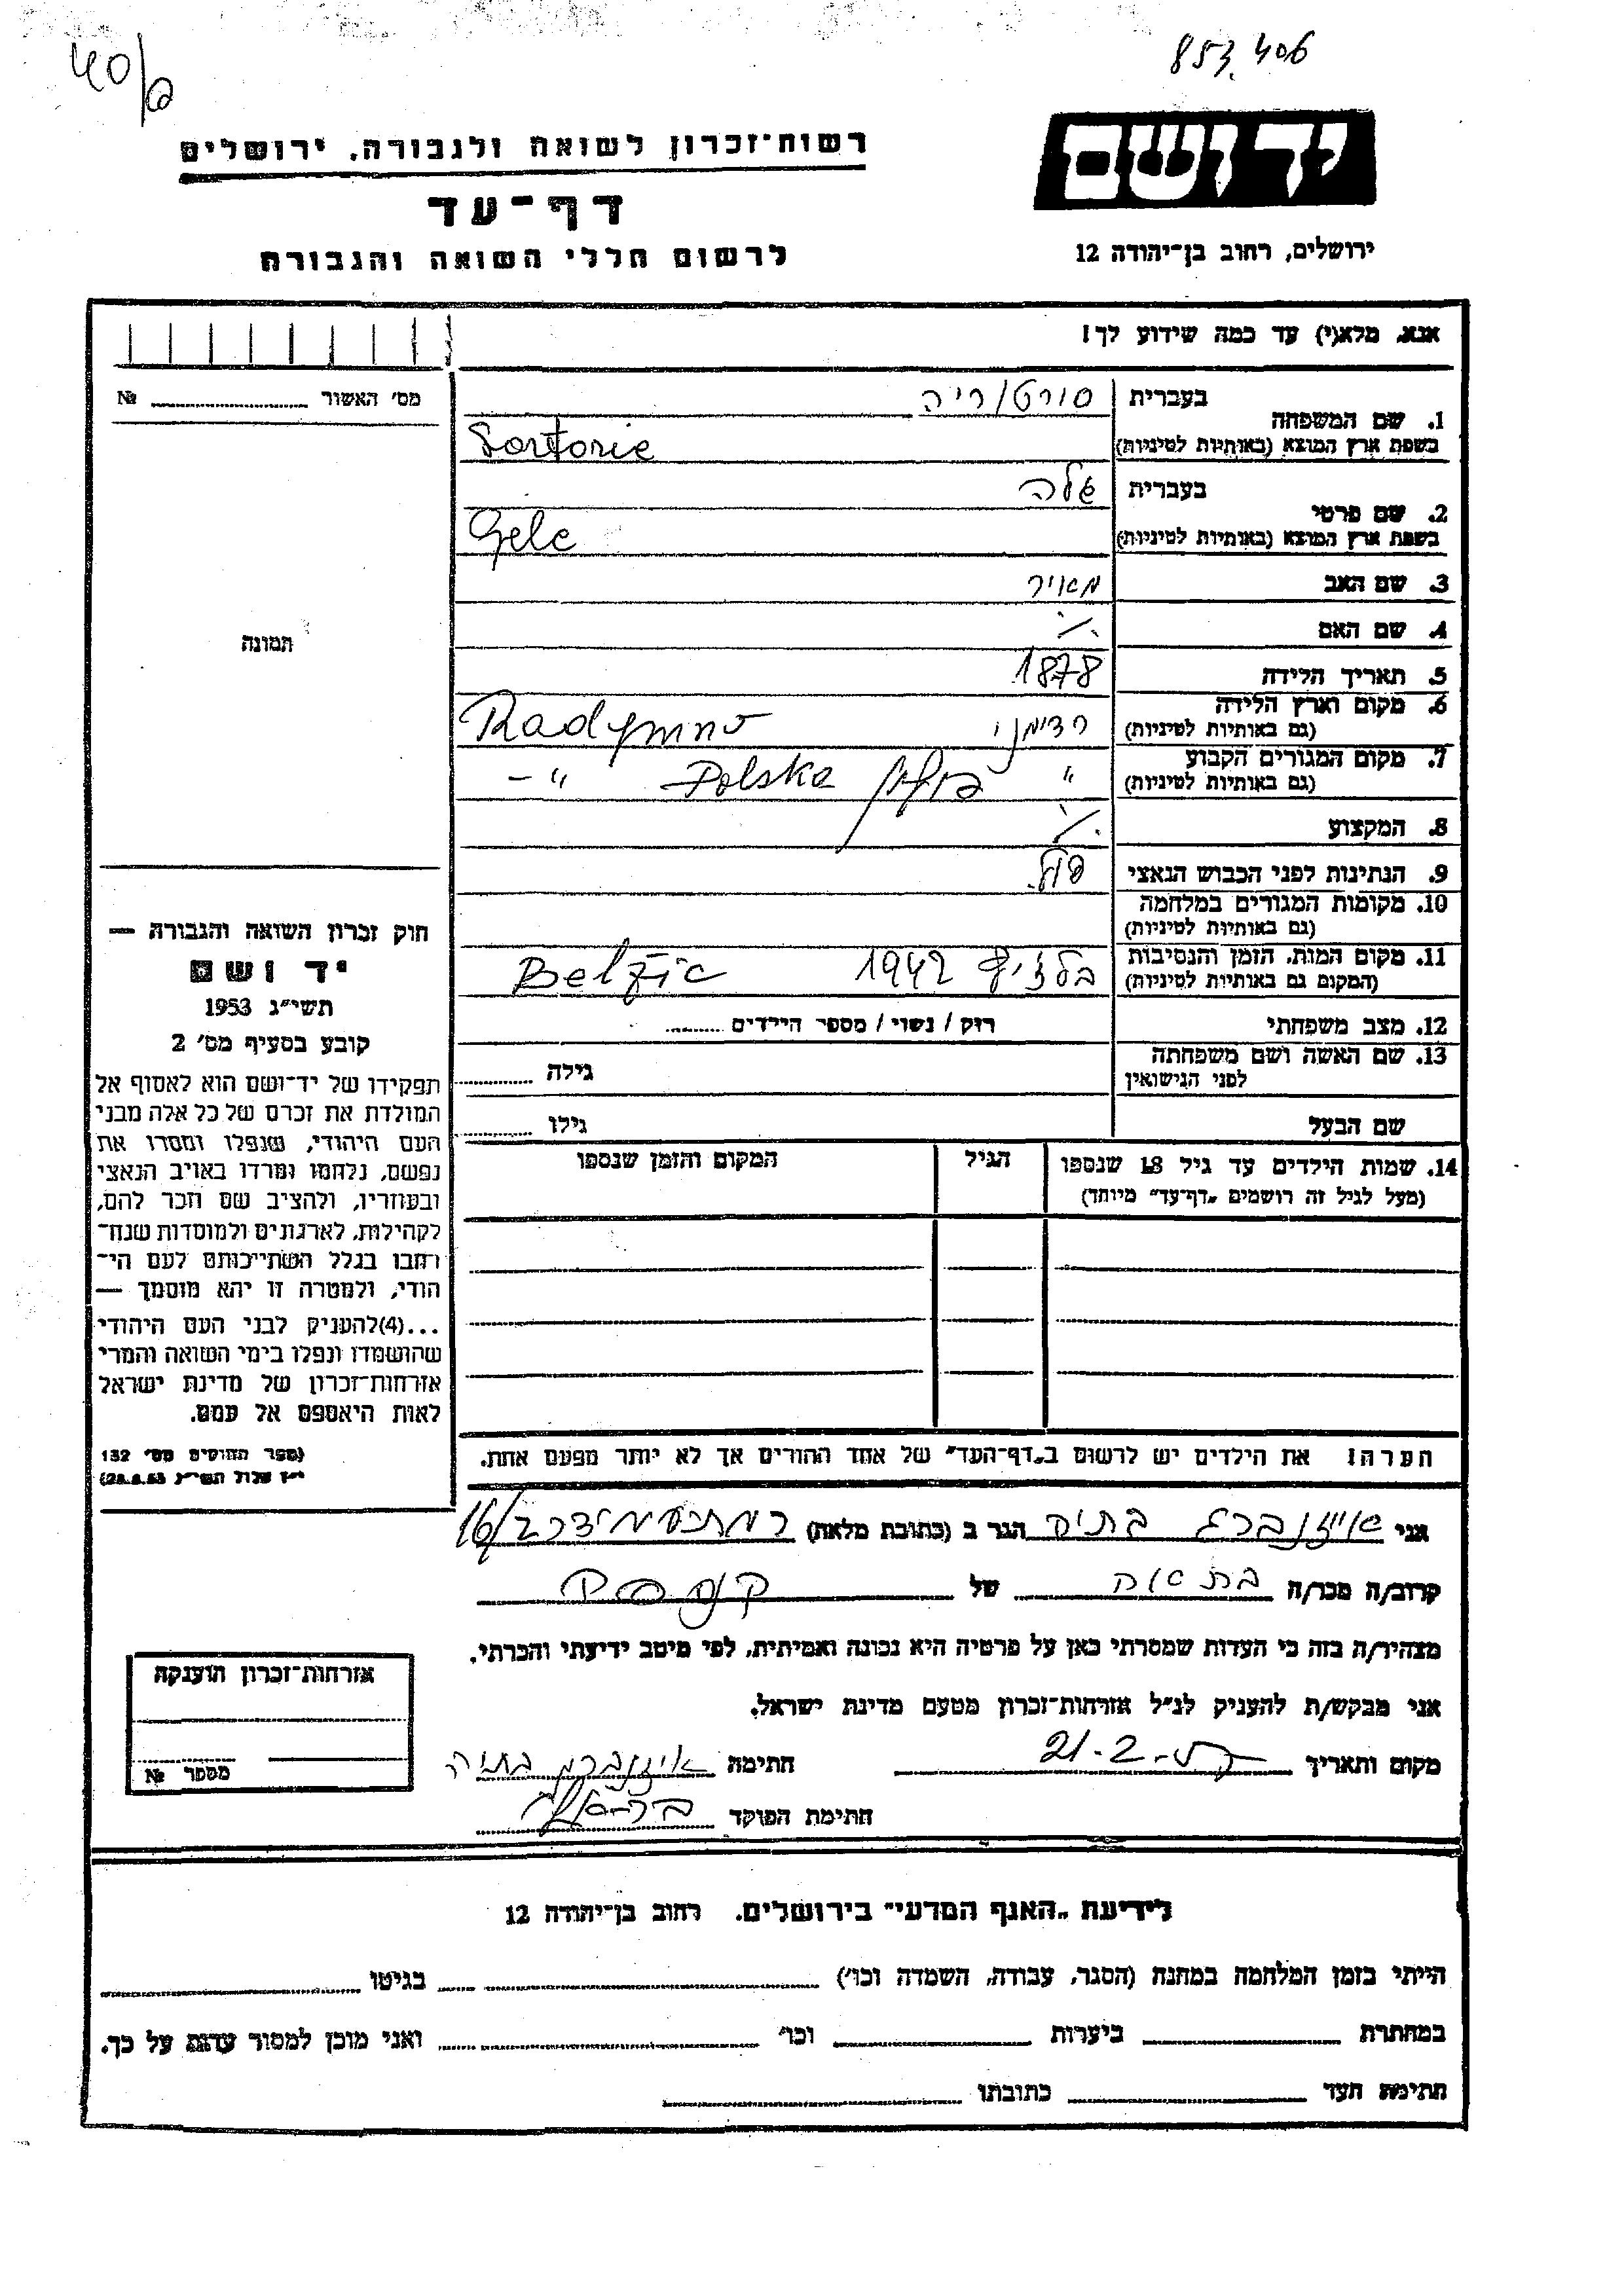 40/6
853.406
יד ושם
ירושלים, רחוב בן־יהודה 12
רשות־זכרון לשואה ולגבורה, ירושלים
דף־עד
לרשום חללי השואה והגבורה
אנא, מלא(י) עד כמה שידוע לך!
1. שם המשפחה
בעברית סורטוריה
בשפת ארץ המוצא (באותיות לטיניות) Sortorie
2. שם פרטי
בעברית גלה
בשפת ארץ המוצא (באותיות לטיניות) Gele
3. שם האב מאיר
4. שם האם ./.
5. תאריך הלידה 1878
6. מקום וארץ הלידה
(גם באותיות לטיניות) רדימני Radymno
7. מקום המגורים הקבוע
(גם באותיות לטיניות) " פולין Polska – " –
8. המקצוע ./.
9. הנתינות לפני הכבוש הנאצי פול.
10. מקומות המגורים במלחמה
(גם באותיות לטיניות)
11. מקום המות, הזמן והנסיבות
(המקום גם באותיות לטיניות) בלזיץ 1942 Belzic
12. מצב משפחתי רווק / נשוי / מספר הילדים ........
13. שם האשה ושם משפחתה
לפני הנישואין גילה ........
שם הבעל גילו ........
14. שמות הילדים עד גיל 18 שנספו
(מעל לגיל זה רושמים „דף־עד" מיוחד)
הגיל
המקום והזמן שנספו
הערה! את הילדים יש לרשום ב„דף־העד" של אחד ההורים אך לא יותר מפעם אחת.
מס' האשור № ........
תמונה
חוק זכרון השואה והגבורה —
יד ושם
תשי"ג 1953
קובע בסעיף מס' 2
תפקידו של יד־ושם הוא לאסוף אל
המולדת את זכרם של כל אלה מבני
העם היהודי, שנפלו ומסרו את
נפשם, נלחמו ומרדו באויב הנאצי
ובעוזריו, ולהציב שם וזכר להם,
לקהילות, לארגונים ולמוסדות שנח־
רבו בגלל השתייכותם לעם הי־
הודי, ולמטרה זו יהא מוסמך —
...(4) להעניק לבני העם היהודי
שהושמדו ונפלו בימי השואה והמרי
אזרחות־זכרון של מדינת ישראל
לאות היאספם אל עמם.
(ספר החוקים מס' 132
י"ז אלול תשי"ג 28.8.53)
אני איזנברג בתיה הגר ב (כתובת מלאה) 16/
קרוב/ה מכר/ה של
מצהיר/ה בזה כי העדות שמסרתי כאן על פרטיה היא נכונה ואמיתית, לפי מיטב ידיעתי והכרתי.
אני מבקש/ת להעניק לנ"ל אזרחות־זכרון מטעם מדינת ישראל.
מקום ותאריך 21-2- חתימה איזנברג בתיה
חתימת הפוקד
אזרחות־זכרון הוענקה
מספר №
לידיעת „האגף המדעי" בירושלים. רחוב בן־יהודה 12
הייתי בזמן המלחמה במחנה (הסגר, עבודה, השמדה וכו') בגיטו
במחתרת ביערות וכו' ואני מוכן למסור עדות על כך.
חתימת העד כתובתו